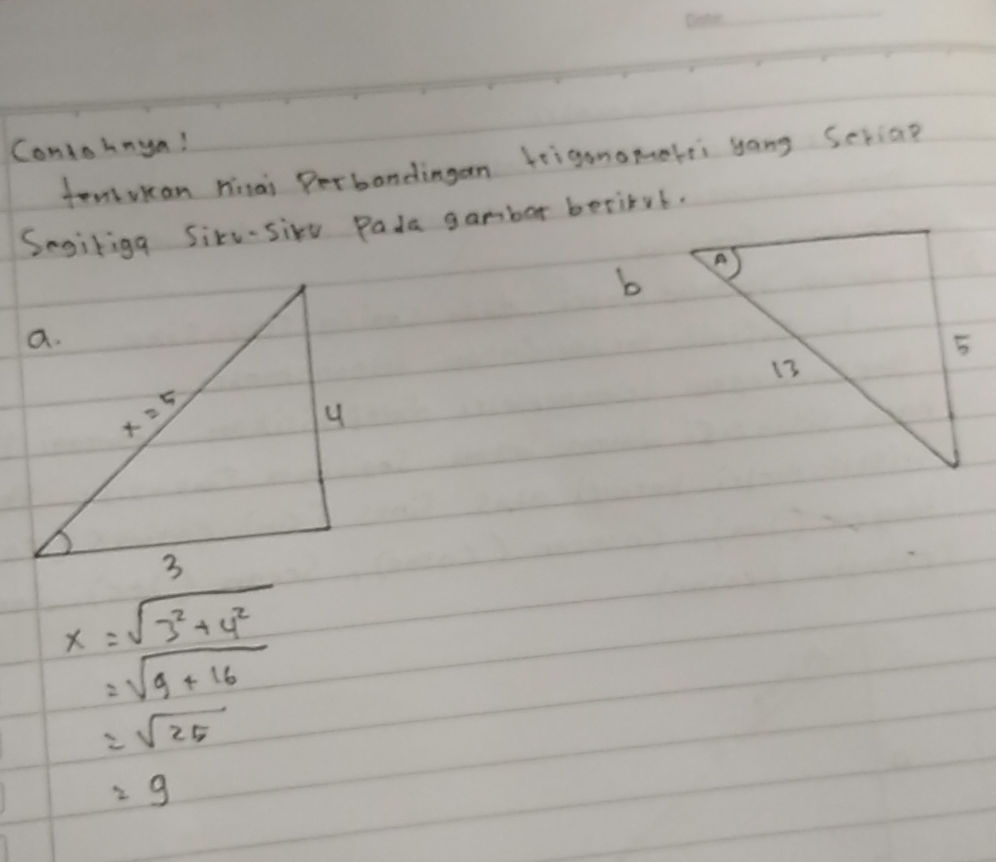 Date
Contohnya!
tentukan nilai Perbandingan trigonometri yang Setiap
Segitiga Siku-Siku Pada gambar berikut.
a.
x = 5
4
3
b
A
13
5
x = √3² + 4²
= √9 + 16
= √25
= 9